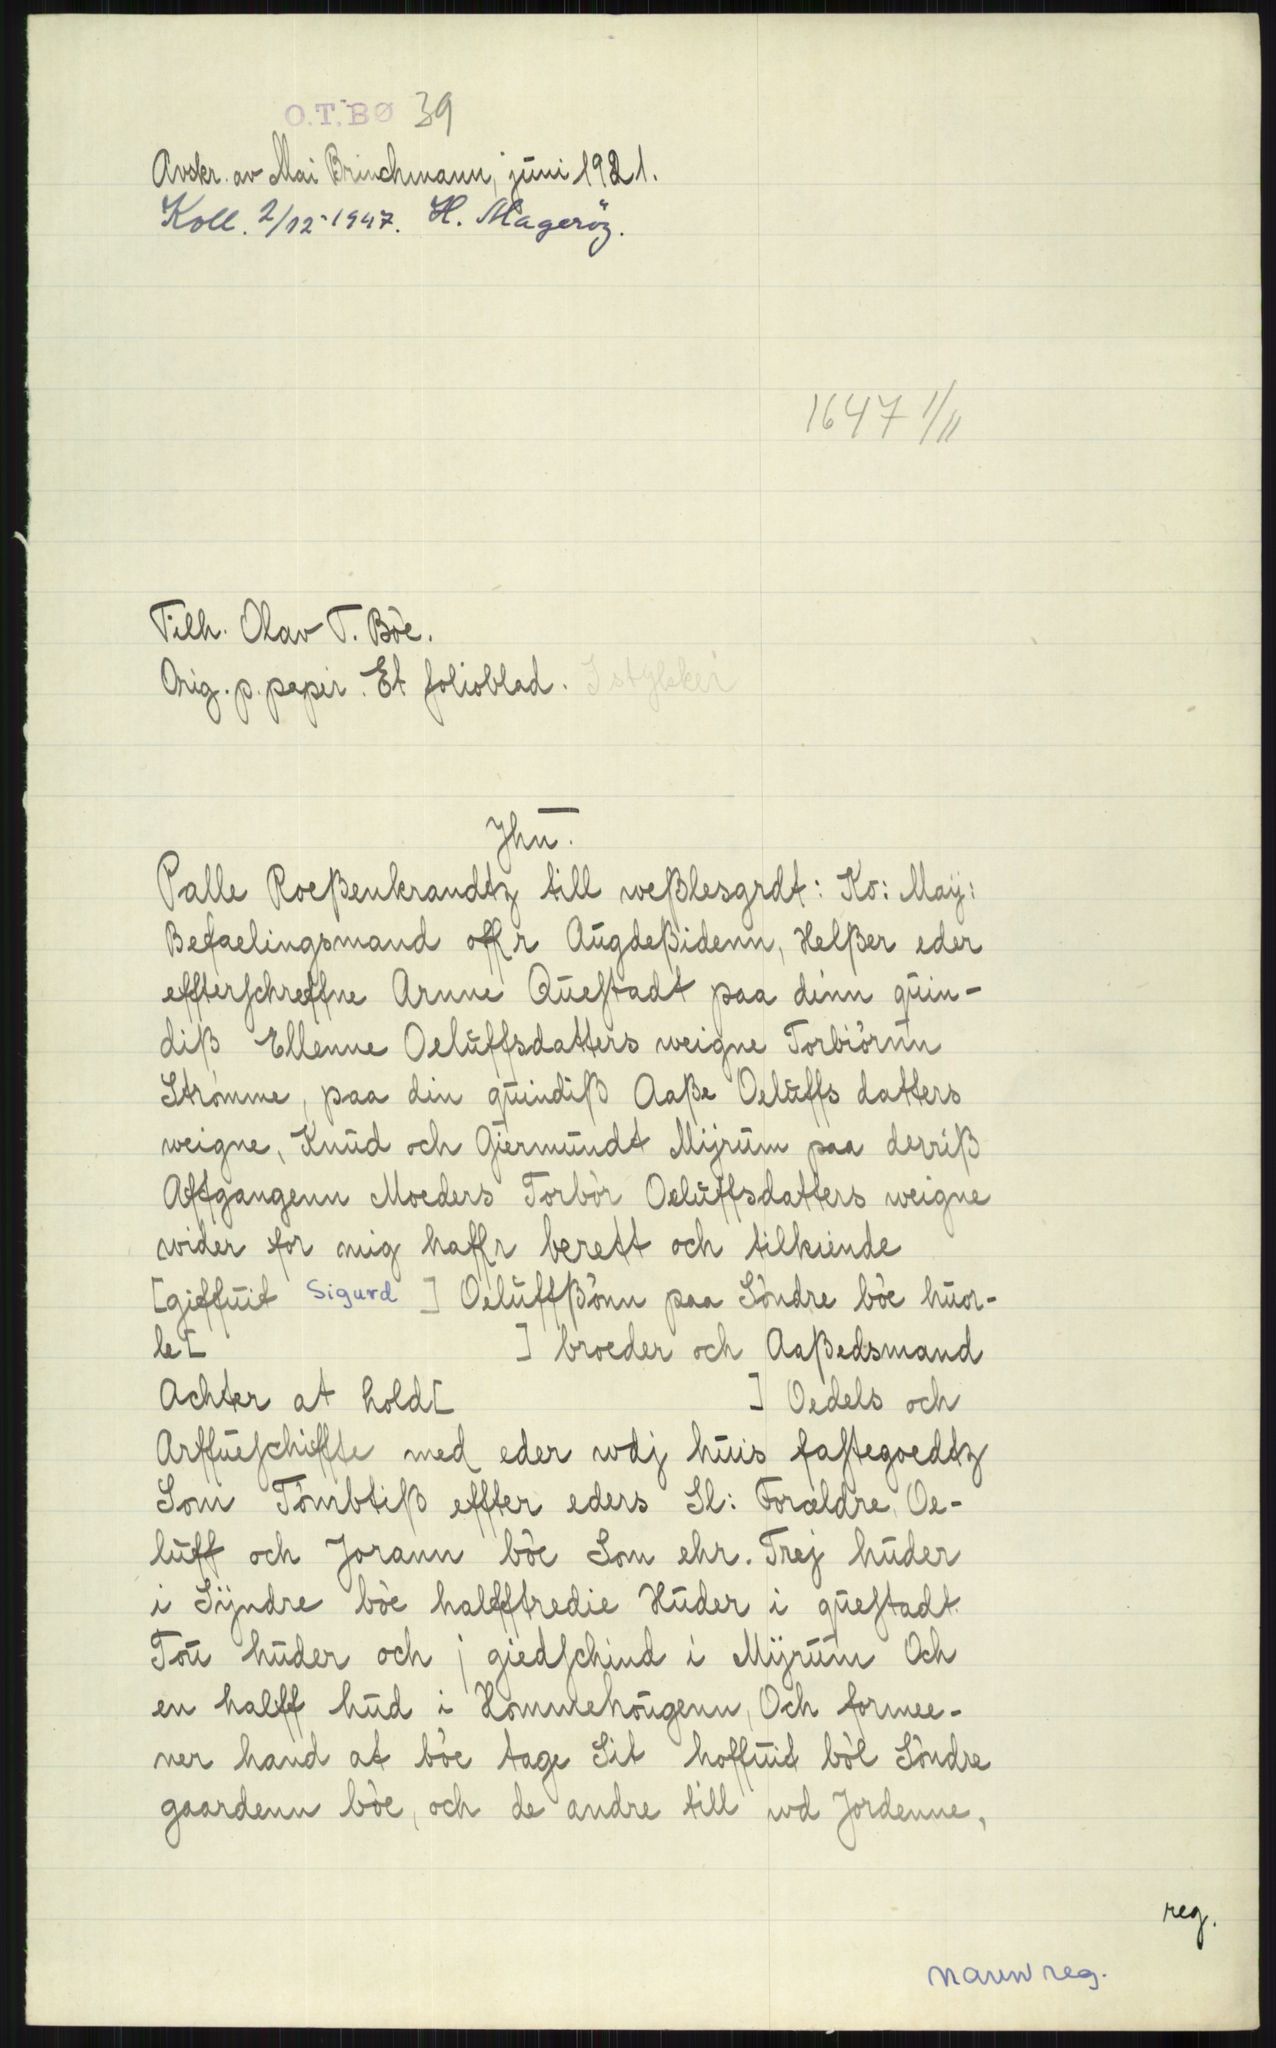 O.T.BØ 39
Avskr. av Mai Brinchmann, juni 1921.
Koll. 2/12-1947. H. Magerøy.
1647 1/11
Tilh. Olav T. Böe.
Orig. p. papir. Et folioblad. I stykker
Jhu.
Palle Roeßenkrandtz till weßlesgrdt: Ko: Maij:
Befaelingsmand offr Augdeßidenn, Helßer eder
effterschreffne Arnne Questadt paa dinn quin-
diß Ellenne Oeluffsdatters weigne Torbiörnn
Strømme, paa din quindiß Aaße Oeluffs datters
weigne, Knud och Giermundt Mijrum paa derriß
Affgangenn Moeders Torbör Oeluffsdatters weigne
wider for mig haffr berett och tilkiende
[gieffuit Sigurd ] Oeluffßönn paa Söndre böe huor-
le[ ] broeder och Aaßedsmand
Achter at hold[ ] Oedels och
Arffueschiffte med eder wdj huis fastegoedtz
Som Tömbtiß effter eders Sl: Foraeldre, Oe-
luff och Jorann böe Som ehr. Trej huder
i Sÿndre böe halfftredie Huder i questadt
Tou huder och j giedschind i Mijrum Och
en halff hud i Hommehougenn, Och formee-
ner hand at böe tage Sit hoffuit böl Söndre
gaardenn böe, och de andre till wd Jordenne,
reg.
navnreg.